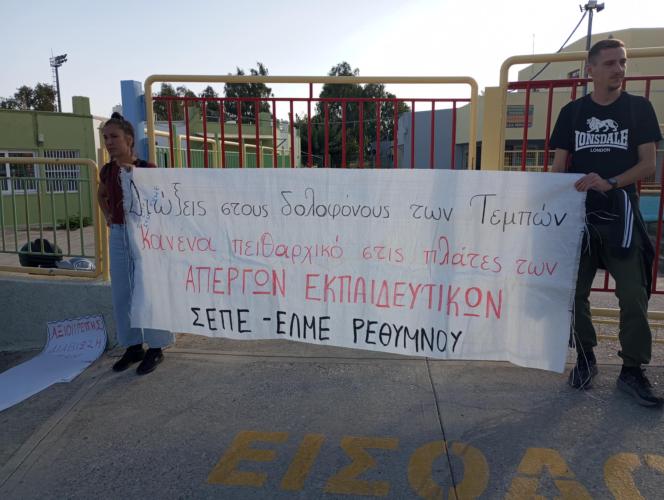 LONSDALE
LONDON
Διώξεις στους δολοφόνους των Τεμπών
Κανένα πειθαρχικό στις πλάτες των
ΑΠΕΡΓΩΝ ΕΚΠΑΙΔΕΥΤΙΚΩΝ
ΣΕΠΕ - ΕΛΜΕ ΡΕΘΥΜΝΟΥ
ΑΞΙΟΠΡΕΠΗΣ
ΔΙΑΒΙΩΣΗ
ΕΙΣΟΔΟΣ